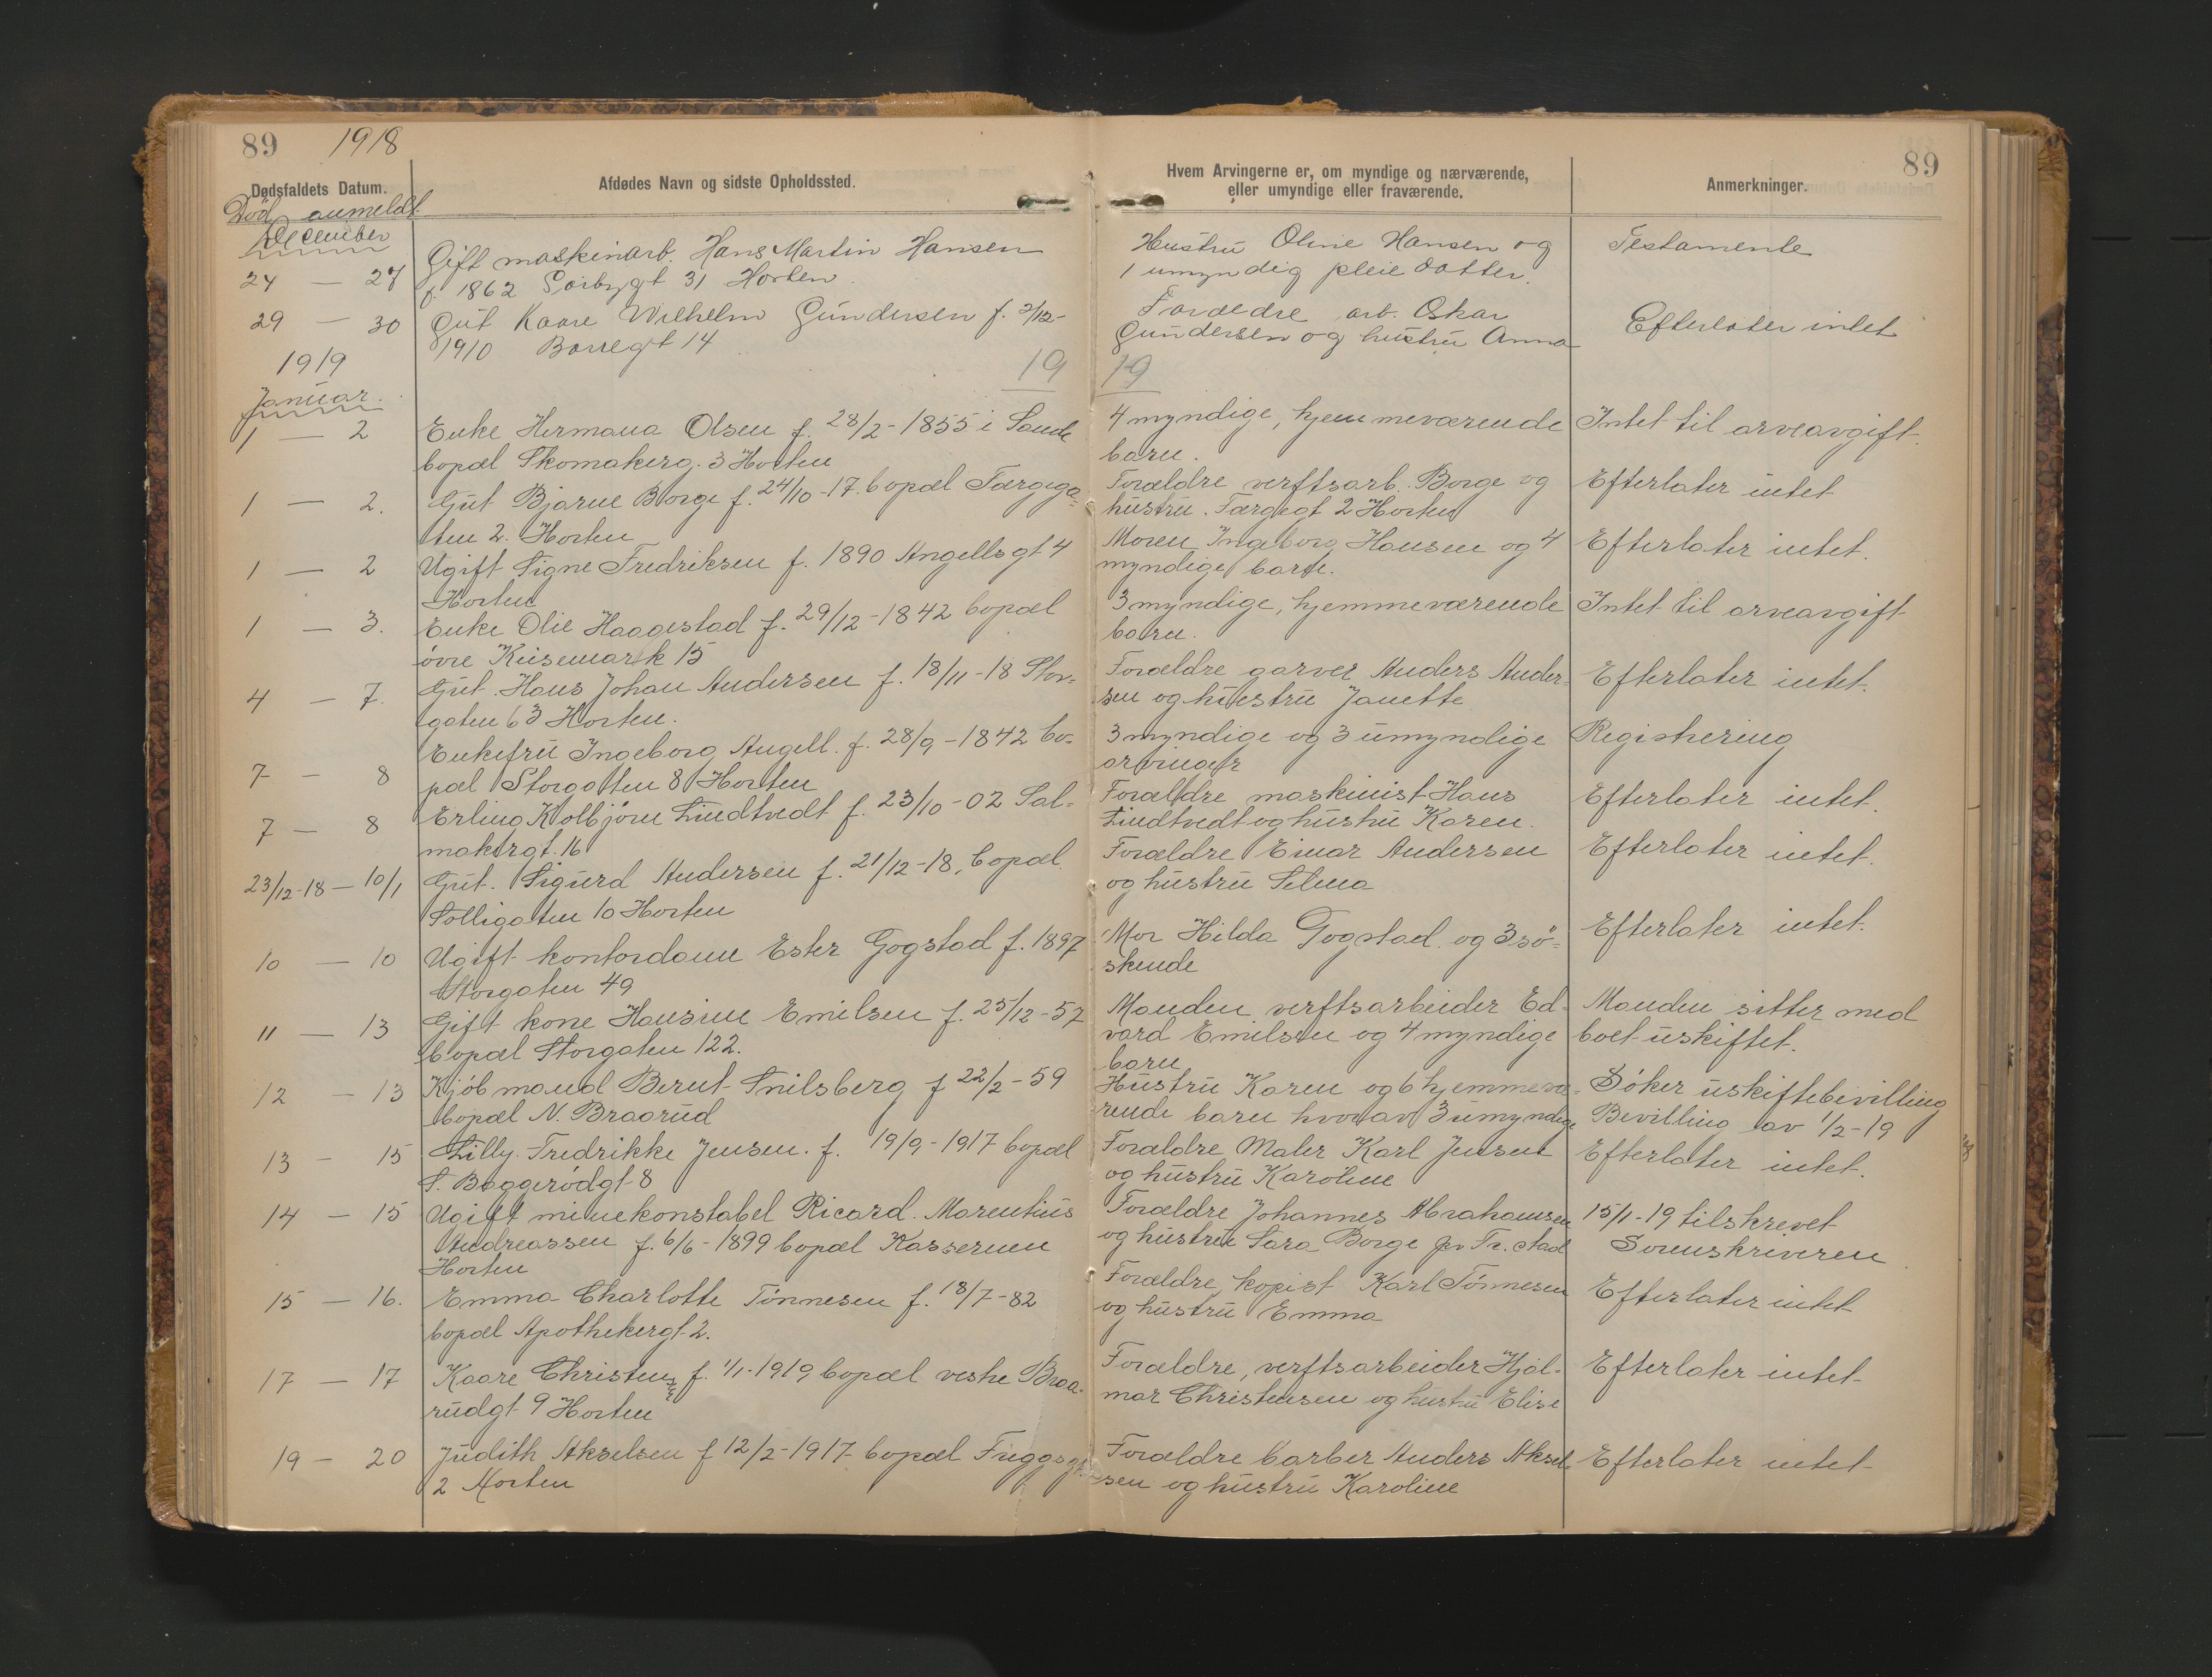 89 1918
89
Dødsfaldets Datum.
Afdødes Navn og sidste Opholdssted.
Hvem Arvingerne er, om myndige og nærværende,
eller umyndige eller fraværende.
Anmerkninger.
Död anmeldt
December
24 — 27
Gift maskinarb. Hans Martin Hansen
f. 1862 31 Horten
Hustru Oline Hansen og
1 umyndig pleie datter.
Testamente
29 — 30
Gut Kaare Wilhelm Gundersen f. 2/12-
1910 Borregt 14
Forældre arb. Oskar
Gundersen og hustru Anna
Efterlater intet
1919
19 19
Januar.
1 — 2
Enke Hermana Olsen f. 28/2-1855 i Sande
bopæl Skomakerg. 3 Horten
4 myndige, hjemmeværende
barn.
Intet til arveavgift.
1 — 2.
Gut Bjarne Borge f. 24/10-17. bopæl Færgega-
ten 2. Horten
Forældre verftsarb. Borge og
hustru. Færgegt 2 Horten
Efterlater intet
1 — 2
Ugift Signe Fredriksen f. 1890 Angellsgt 4
Horten
Moren Ingeborg Hansen og 4
myndige barn.
Efterlater intet.
1 — 3.
Enke Olie Haagestad f. 29/12-1842 bopæl
övre Keisemark 15
3 myndige, hjemmeværende
barn.
Intet til arveavgift
4 — 7.
Gut. Hans Johan Andersen f. 18/11-18 Stor-
gaten 63 Horten.
Forældre garver Anders Ander-
sen og hustru Janette
Efterlater intet.
7 — 8
Enkefru Ingeborg Angell. f. 28/9-1842 bo-
pæl Storgaten 8 Horten
3 myndige og 3 umyndige
arvinger
Registrering
7 — 8
Erling Kolbjörn Lindtvedt f. 23/10-02 Sal-
makergt. 16
Forældre maskinist Hans
Lindtvedt og hustru Karen.
Efterlater intet.
23/12-18 — 10/1
Gut. Sigurd Andersen f. 21/12-18, bopæl
Solligaten 10 Horten
Forældre Einar Andersen
og hustru Selma
Efterlater intet.
10 — 10
Ugift kontordame Ester Gogstad f. 1897
Storgaten 49
Mor Hilda Gogstad og 3 sö-
skende
Efterlater intet.
11 — 13
Gift kone Hansine Emilsen f. 25/12-57
bopæl Storgaten 122.
Manden verftsarbeider Ed-
vard Emilsen og 4 myndige
barn
Manden sitter med
boet uskiftet.
12 — 13
Kjöbmand Bernt Snilsberg f 22/2-59
bopæl N. Braarud
Hustru Karen og 6 hjemmevæ-
rende barn hvorav 3 umyndige
Söker uskiftebevilling
Bevilling av 1/2-19
13 — 15
Lilly Fredrikke Jensen. f. 19/9-1917 bopæl
S. Baggerødgt 8
Forældre Maler Karl Jensen
og hustru Karoline
Efterlater intet.
14 — 15
Ugift minekonstabel Ricard. Marentius
Andreassen f. 6/6-1899 bopæl Kassernen
Horten
Forældre Johannes Abrahamsen
og hustru Sara Borge pr Fr.stad
15/1-19 tilskrevet
Sorenskriveren
15 — 16.
Emma Charlotte Tönnesen f. 18/7-82
bopæl Apothekergt 2.
Forældre kopist Karl Tönnesen
og hustru Emma
Efterlater intet
17 — 17
Kaare Christensen f. 1/1-1919 bopæl vestre Braa-
rudgt 9 Horten
Forældre, verftsarbeider Hjal-
mar Christensen og hustru Elise
Efterlater intet
19 — 20
Judith Akselsen f 12/2-1917 bopæl Friggsgt
2 Horten
Forældre barber Anders Aksel-
sen og hustru Karoline
Efterlater intet